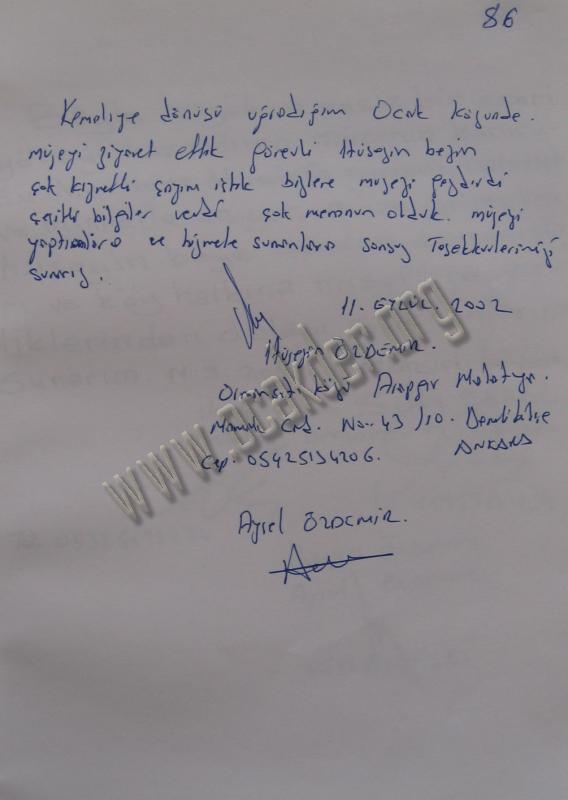 86
Kemaliye dönüşü uğradığım Ocak köyünde.
müzeyi ziyaret ettik görevli Hüseyin beyin
çok kıymetli çayını içtik bizlere müzeyi gezdirdi
çeşitli bilgiler verdi çok memnun olduk. müzeyi
yaptıranlara ve hizmete sunanlara sonsuz Teşekkürlerimizi
sunarız.
11. EYLÜL. 2002
Hüseyin ÖZDEMİR.
köyü Arapgir Malatya.
Mamak Cad. No: 43/10. Demirlibahçe
ANKARA
Cep. 05425134206.
Aysel ÖZDEMİR.
www.ocakder.org